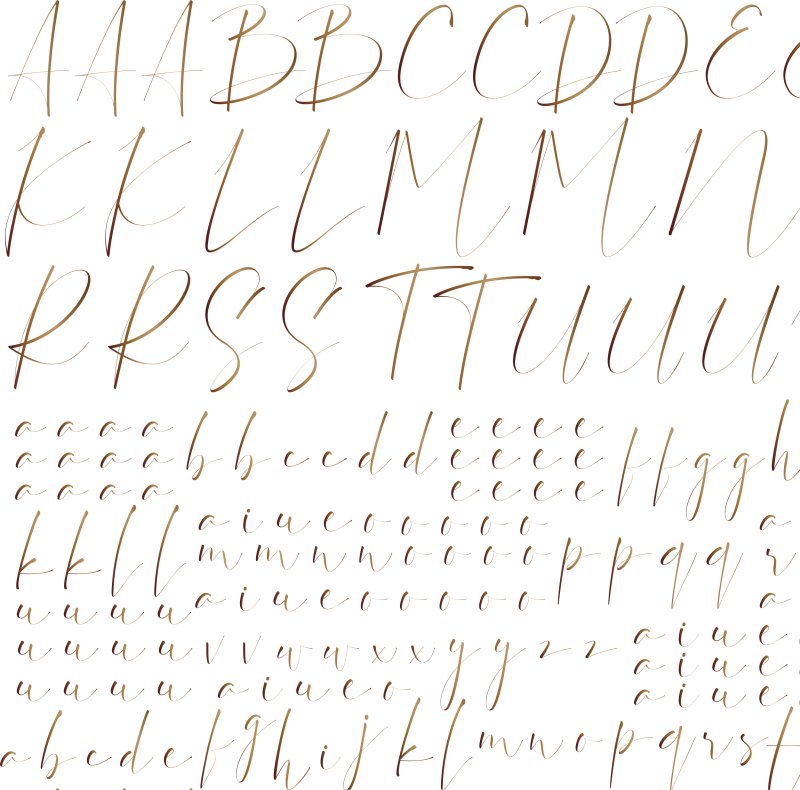 A A A B B C C D D E
K K L L M M N
R R S S T T U U U
a a a a b b c c d d e e e e f f g g h
a a a a e e e e
a a a a e e e e
k k l l a i u e o o o o o a
m m n n o o o o p p q q r
u u u u a i u e o o o o o a
u u u u v v w w x x y y z z a i u e
a i u e
u u u u a i u e o a i u e
a b c d e f g h i j k l m n o p q r s t